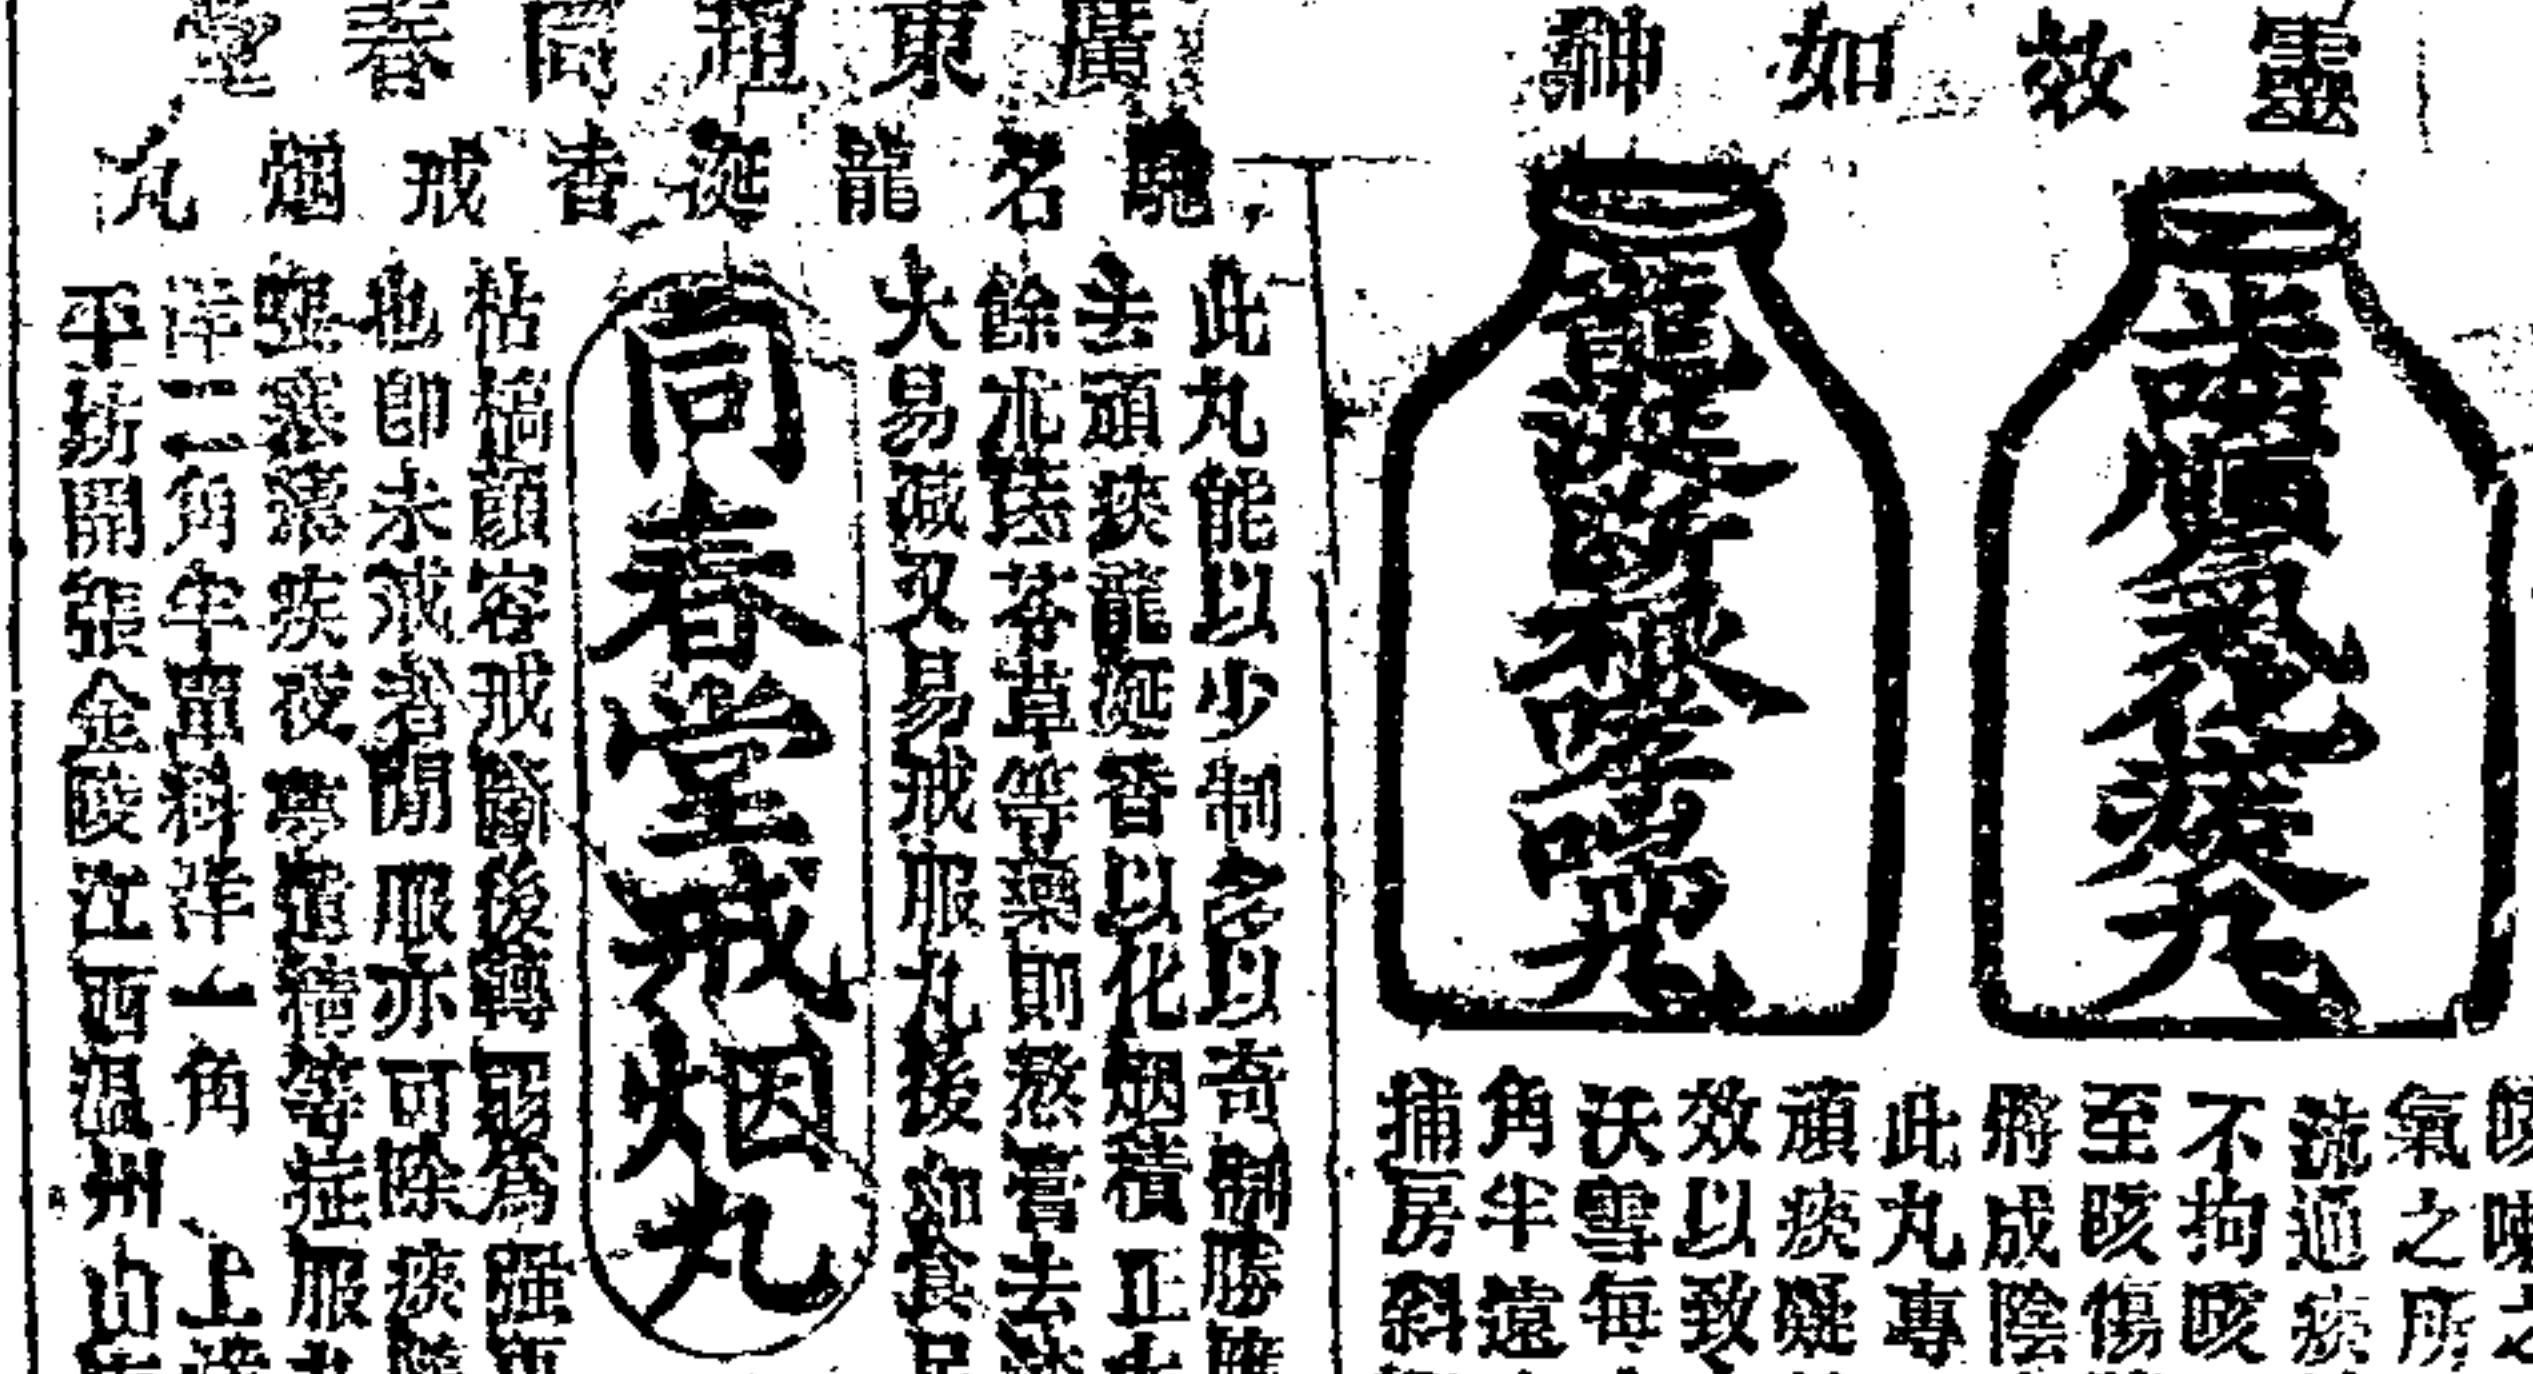 靈效如神
止咳順氣化痰丸
龍涎斷根哮喘丸
氣之所
流通痰
不拘咳
至咳傷
將成陰
此丸專
頑痰凝
效以致
沃雪每
角半遠
捕房斜
廣東趙同春堂
馳名龍涎香戒烟丸
此丸能以少制多以奇制勝
去頑痰龍涎香以化烟積正
餘朮茋苓草等藥則熬膏去
大易減又易戒服丸後如食
同春堂戒烟丸
枯槁顏容戒斷後轉弱為强
也卽未戒者閒服亦可除痰
痰夜夢遺精等症服
洋二角半單料洋一角 上
平坊開張金陵江西溫州